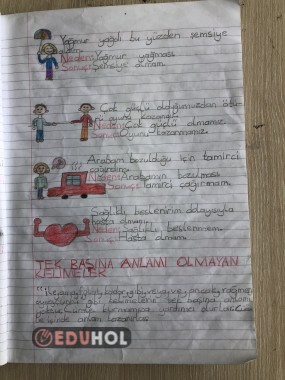 Yağmur yağdı bu yüzden şemsiye
aldım.
Neden: Yağmur yağması
Sonuç: Şemsiye almam.
Çok güçlü olduğumuzdan
oyunu kazandık.
Neden: Çok güçlü olmamız
Sonuç: Oyunu kazanmamız.
Arabam bozulduğu için tamirci
çağırdım.
Neden: Arabamın bozulması
Sonuç: Tamirci çağırmam.
Sağlıklı beslenirim dolayısıyla
hasta olmam.
Neden: Sağlıklı beslenirim.
Sonuç: Hasta olmam.
TEK BAŞINA ANLAMI OLMAYAN
KELİMELER
için, kadar, gibi, ve, ya, ancak, rağmen
gibi kelimelerin tek başına anlamı
yoktur. Cümle kurmamıza yardımcı olurlar. Cümle
içinde anlam kazanırlar.
EDUHOL